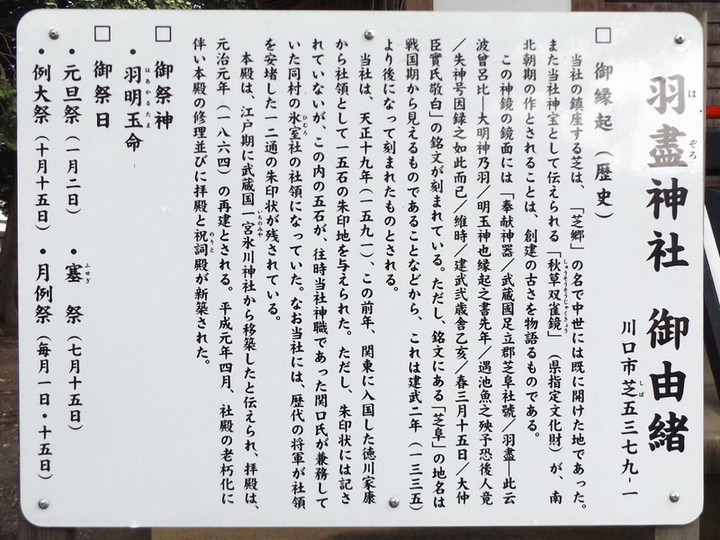 羽盡神社 御由緒
川口市芝五三七九-一
□ 御縁起(歴史)
当社の鎮座する芝は、「芝郷」の名で中世には既に開けた地であった。
また当社神宝として伝えられる「秋草双雀鏡」(県指定文化財)が、南
北朝期の作とされることは、創建の古さを物語るものである。
この神鏡の鏡面には「奉献神器/武蔵國足立郡芝阜社號/羽盡―此云
波曾呂比―大明神乃羽/明玉神也縁起之書先年/遇池魚之殃予恐後人竟
/失神号因録之如此而已/維時/建武弐歳舎乙亥/春三月十五日/大仲
臣實氏敬白」の銘文が刻まれている。ただし、銘文にある「芝阜」の地名は
戦国期から見えるものであることなどから、これは建武二年(一三三五)
より後になって刻まれたものとされる。
当社は、天正十九年(一五九一)、この前年、関東に入国した徳川家康
から社領として一五石の朱印地を与えられた。ただし、朱印状には記さ
れていないが、この内の五石が、往時当社神職であった関口氏が兼務して
いた同村の氷室社の社領になっていた。なお当社には、歴代の将軍が社領
を安堵した一二通の朱印状が残されている。
本殿は、江戸期に武蔵国一宮氷川神社から移築したと伝えられ、拝殿は、
元治元年(一八六四)の再建とされる。平成元年四月、社殿の老朽化に
伴い本殿の修理並びに拝殿と祝詞殿が新築された。
□ 御祭神
・羽明玉命
□ 御祭日
・元旦祭(一月二日) ・塞祭(七月十五日)
・例大祭(十月十五日) ・月例祭(毎月一日・十五日)